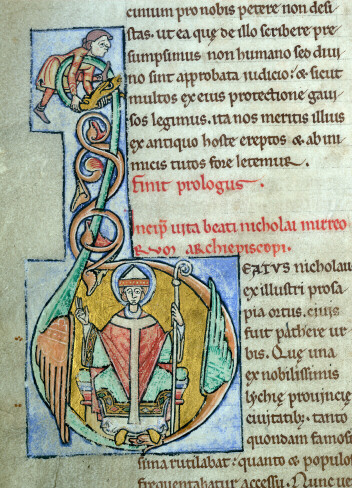 cinium pro nobis petere non desi
stas. ut ea quę de illo scribere pre
sumpsimus non humano sed divi
no sint approbata iudicio: & sicut
multos ex eius protectione gavi
sos legimus. ita nos meritis illius
ex antiquo hoste ereptos & ab ini
micis tutos fore letemur.
finit prologus.
Incip vita beati nicholai mirreo
rum archiepiscopi.
BEATVS nicholaus
ex illustri prosa
pia ortus. civis
fuit patherę ur
bis. Quę una
ex nobilissimis
lychię provincię
civitatib; tanto
quondam famosis
sima rutilabat: quanto & populo
frequentabatur accessu. Nunc ve